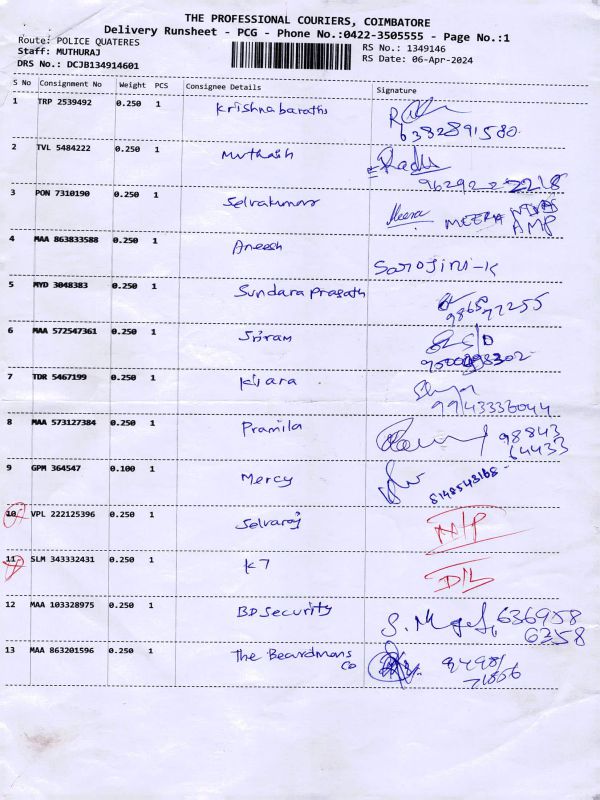 THE PROFESSIONAL COURIERS, COIMBATORE
Delivery Runsheet - PCG - Phone No.:0422-3505555 - Page No.:1
Route: POLICE QUATERES
Staff: MUTHURAJ
DRS No.: DCJB134914601
RS No.: 1349146
RS Date: 06-Apr-2024
S No Consignment No Weight PCS Consignee Details Signature
1 TRP 2539492 0.250 1 Krishna barathi
6382891580
2 TVL 5484222 0.250 1 Muthaiah
3 PON 7310190 0.250 1 Selvakumar Meera MEERA
AMP
4 MAA 863833588 0.250 1 Aneesh
Sarojini-K
5 MYD 3048383 0.250 1 Sundara Prasath
6 MAA 572547361 0.250 1 Sriram
7 TDR 5467199 0.250 1 Kiara
99143336044
8 MAA 573127384 0.250 1 Pramila 98843
64433
9 GPM 364547 0.100 1 Mercy
8148543168
10 VPL 222125396 0.250 1 Selvaraj
11 SLM 343332431 0.250 1 K7
D/L
12 MAA 103328975 0.250 1 BD Security 636958
6358
13 MAA 863201596 0.250 1 The Beardmans
Co